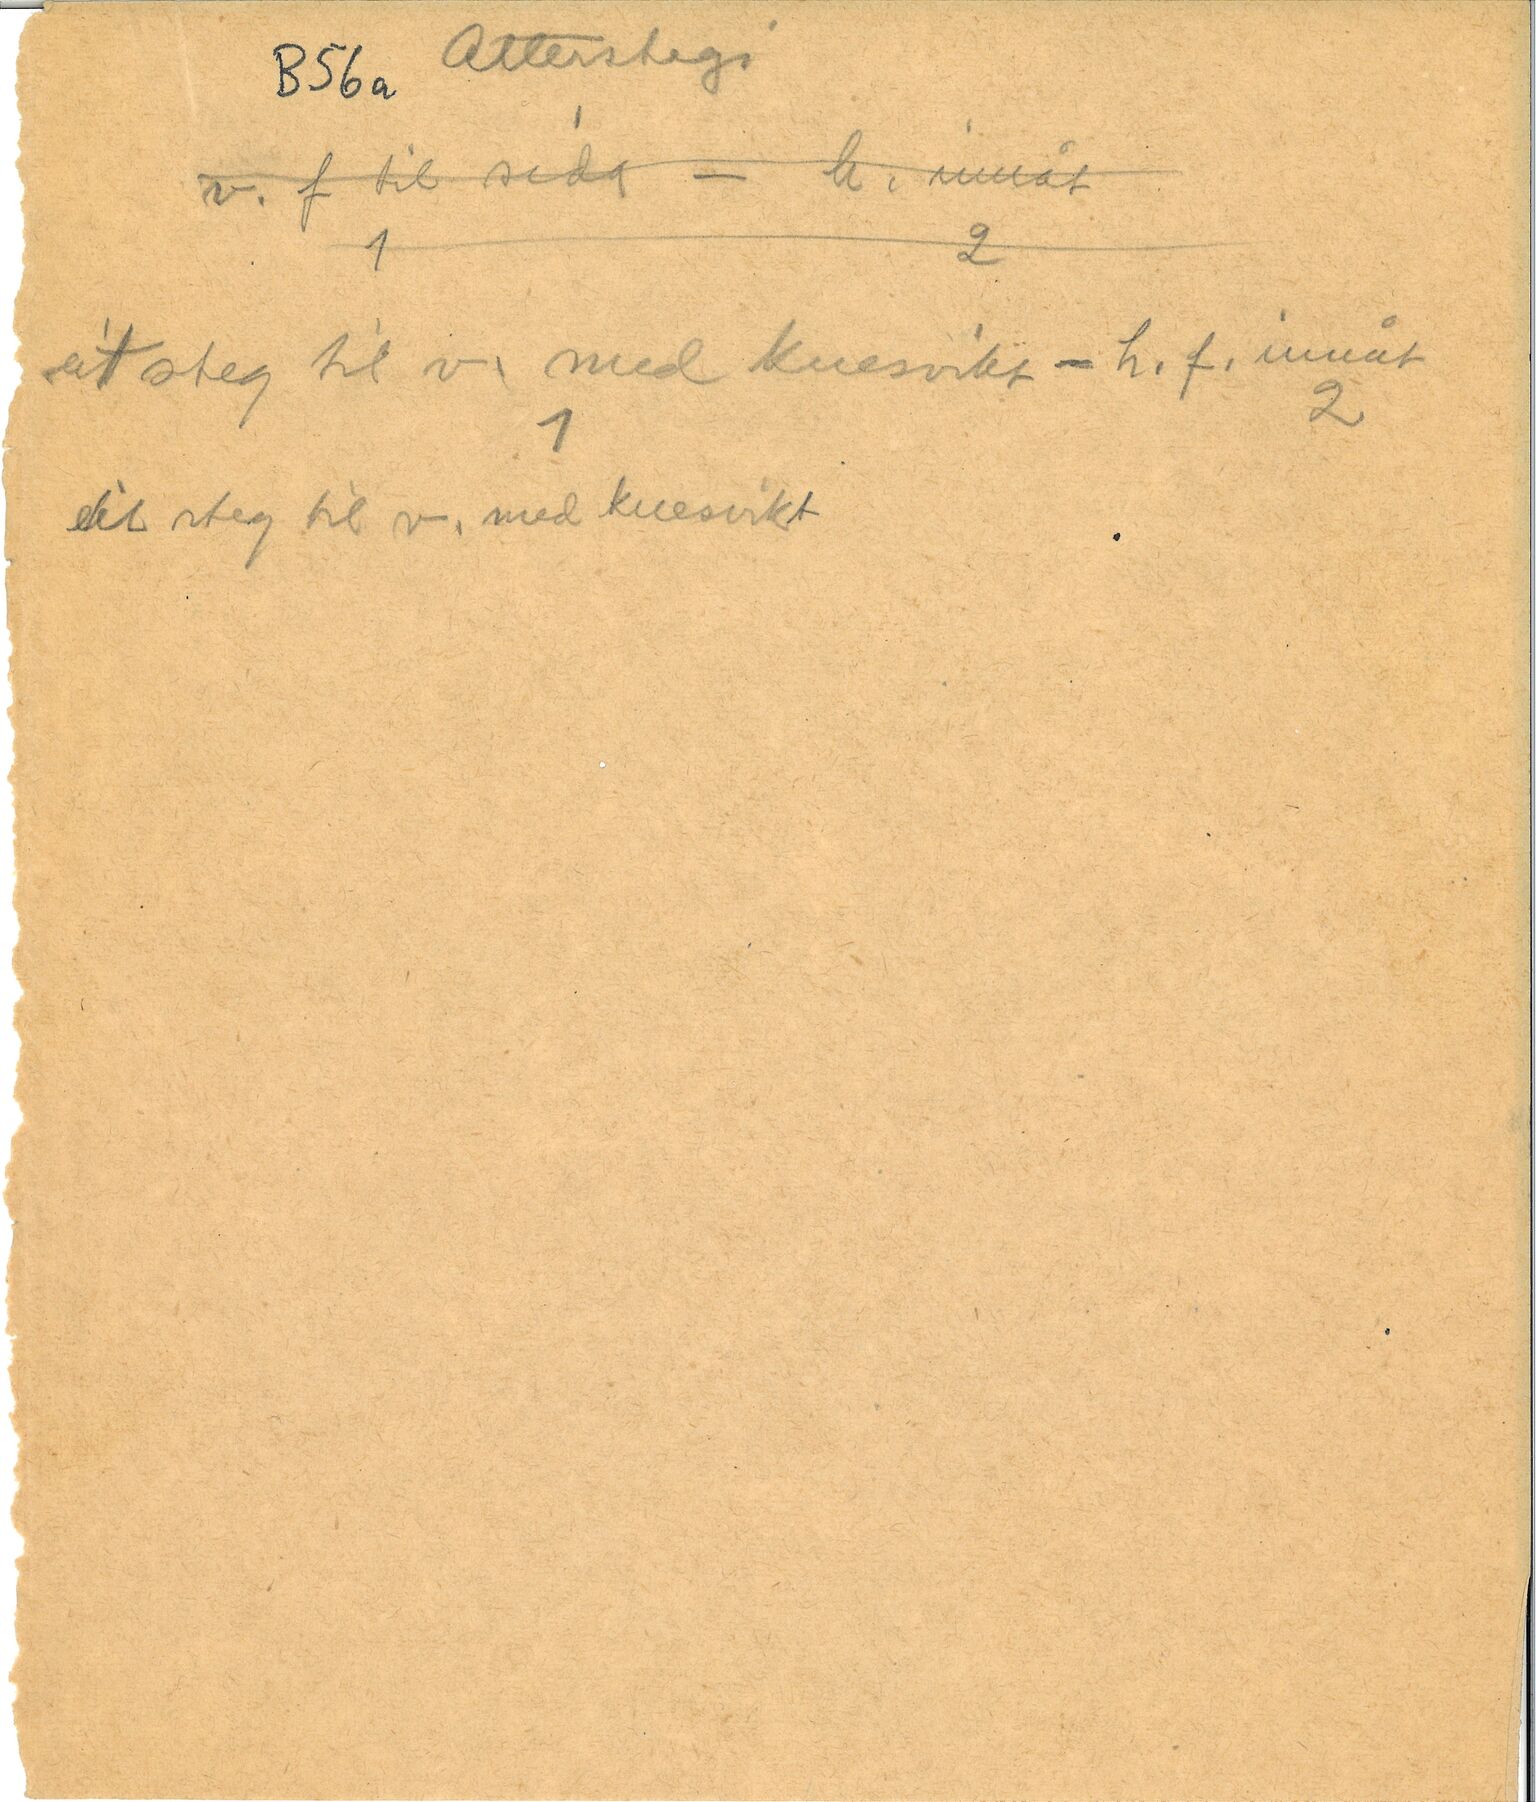 B56a Attersteg
v. f til sida - h. innåt
1 2
eit steg til v. med knesvikt - h. f. innåt
1 2
eit steg til v. med knesvikt